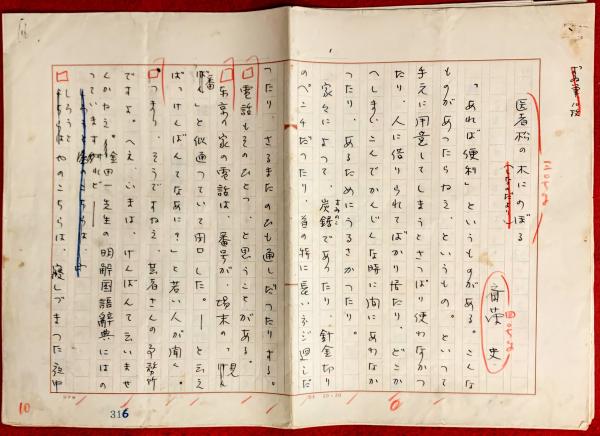 医者松の木にのぼる
斎栄 史
「あれば便利」というものがある。こんな
ものがあったらねえ、というもの。といって
手元に用意してしまうとさっぱり使わなかっ
たり、人に借りられてばかり居たり、どこか
へしまいこんでかんじんな時に間にあわなか
ったり、あるためにうるさかったり。
家々によって、炭鋏であったり、針金切り
のペンチだったり、首の特に長いネジ廻しだ
ったり、さるまたのひも通しだったりする。
電話もそのひとつ、と思うことがある。
あ京の家の電話は、番号が、場末の、「見
番」と似通っていて閉口した。――と云え
ば、「けんばんてなあに?」と若い人が聞く。
つまり、そうですねえ、芸者さんの事務所
ですよ。へえ、いまは、けんばんて云いませ
んかねえ。金田一先生の明解国語辞典にはの
っていますけれど――
しろうとやのこちらは、寝しづまった夜中
316
10